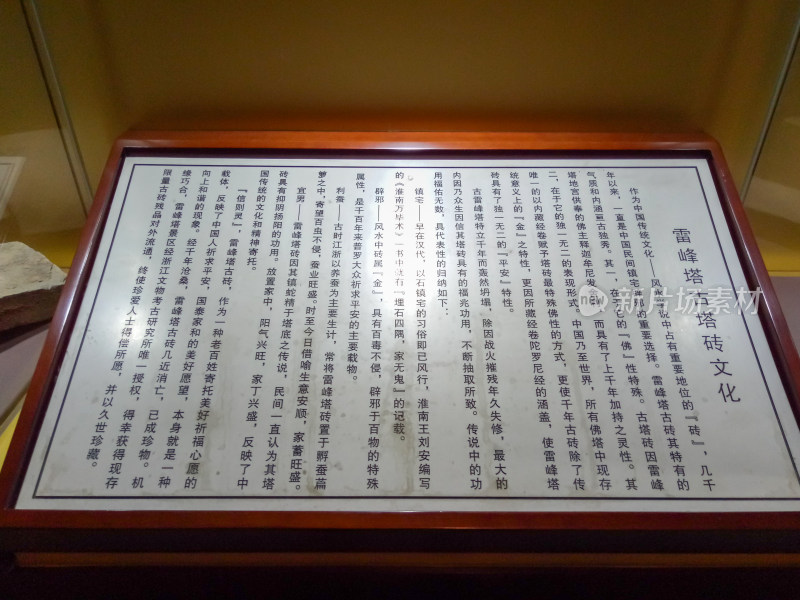 雷峰塔古塔砖文化
作为中国传统文化——风水学说中占有重要地位的『砖』，几千
年以来，一直是中国民间镇宅避邪的重要选择。雷峰塔古砖其特有的
气质和内涵更古独秀。其一，在于它的『佛』性特殊。古塔砖因雷峰
塔地宫供奉的佛主释迦牟尼发舍利而具有了上千年加持之灵性。其
二，在于它的独一无二的表现形式，中国乃至世界，所有佛塔中现存
唯一的以内藏经卷赋予塔砖最特殊佛性的方式，更使千年古砖除了传
统意义上的『金』之特性，更因所藏经卷陀罗尼经的涵盖，使雷峰塔
砖具有了独一无二的『平安』特性。
古雷峰塔特立千年而轰然坍塌，除因战火摧残年久失修，最大的
内因乃众生因信其塔砖具有的福兆功用，不断抽取所致。传说中的功
用福佑无数，具代表性的归纳如下：
镇宅——早在汉代，以石镇宅的习俗即已风行，淮南王刘安编写
的《淮南万毕术》一书中就有『埋石四隅，家无鬼』的记载。
辟邪——风水中砖属『金』，具有百毒不侵，辟邪于百物的特殊
属性，是千百年来普罗大众祈求平安的主要载物。
利蚕——古时江浙以养蚕为主要生计，常将雷峰塔砖置于孵蚕蓝
箩之中，寄望百虫不侵，蚕业旺盛。时至今日借喻生意安顺，家蓄旺盛。
宜男——雷峰塔砖因其镇蛇精于塔底之传说，民间一直认为其塔
砖具有抑阴扬阳的功用。放置家中，阳气兴旺，家丁兴盛，反映了中
国传统的文化和精神寄托。
『信则灵』，雷峰塔古砖，作为一种老百姓寄托美好祈福心愿的
载体，反映了中国人祈求平安，国泰家和的美好愿望，本身就是一种
向上和谐的现象。经千年沧桑，雷峰塔古砖几近消亡，已成珍物。机
缘巧合，雷峰塔景区经浙江文物考古研究所唯一授权，得幸获得现存
限量古砖残品对外流通，终使珍爱人士得偿所愿，并以久世珍藏。
new
新片场素材